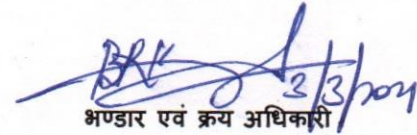 BRK 3/3/2021
भण्डार एवं क्रय अधिकारी